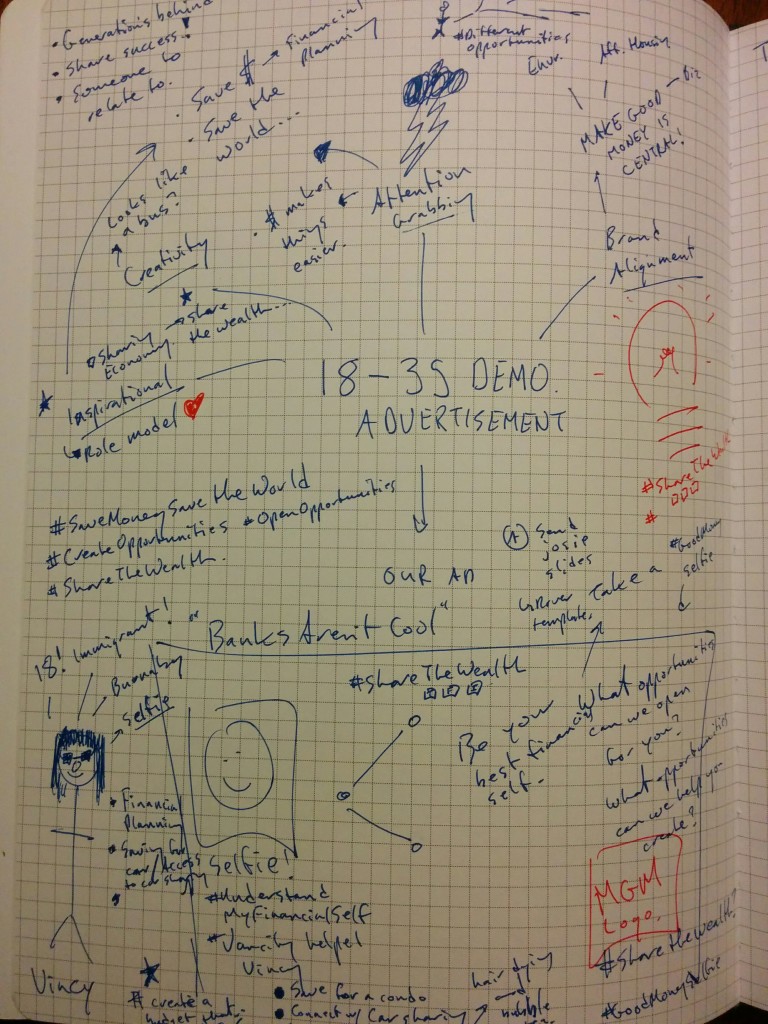 • Generations behind
• Share success!
• Someone to
relate to.
• Save $ → Financial
Planning
• Save the
world...
#Different
opportunities
Envr.
Aff. Housing
MAKE GOOD
MONEY IS
CENTRAL!
Looks like
a bus?
Creativity
• $ makes
things
easier.
Attention
Grabbing
Brand
Alignment
Sharing → share
Economy. the wealth...
Inspirational
↳ Role model
18-35 DEMO.
ADVERTISEMENT
#ShareTheWealth
#
#SaveMoneySaveTheWorld
#CreateOpportunities #OpenOpportunities
#ShareTheWealth.
OUR AD
A Send
josie
slides
template.
Take a #GoodMoney
selfie
18! Immigrant! or "Banks Aren't Cool"
selfie
#ShareTheWealth
Be your
best financial
self.
What opportunities
can we open
for you?
What opportunities
can we help you
create?
• Financial
Planning
• Saving for
car/Access
to car sharing
selfie!
#Understand
MyFinancialSelf
#Vancity helped
Vincy
MGM
Logo.
#ShareTheWealth?
#GoodMoneySelfie
Vincy
# create a
budget that
• Save for a condo
• Connect w/ Car sharing
hair dying